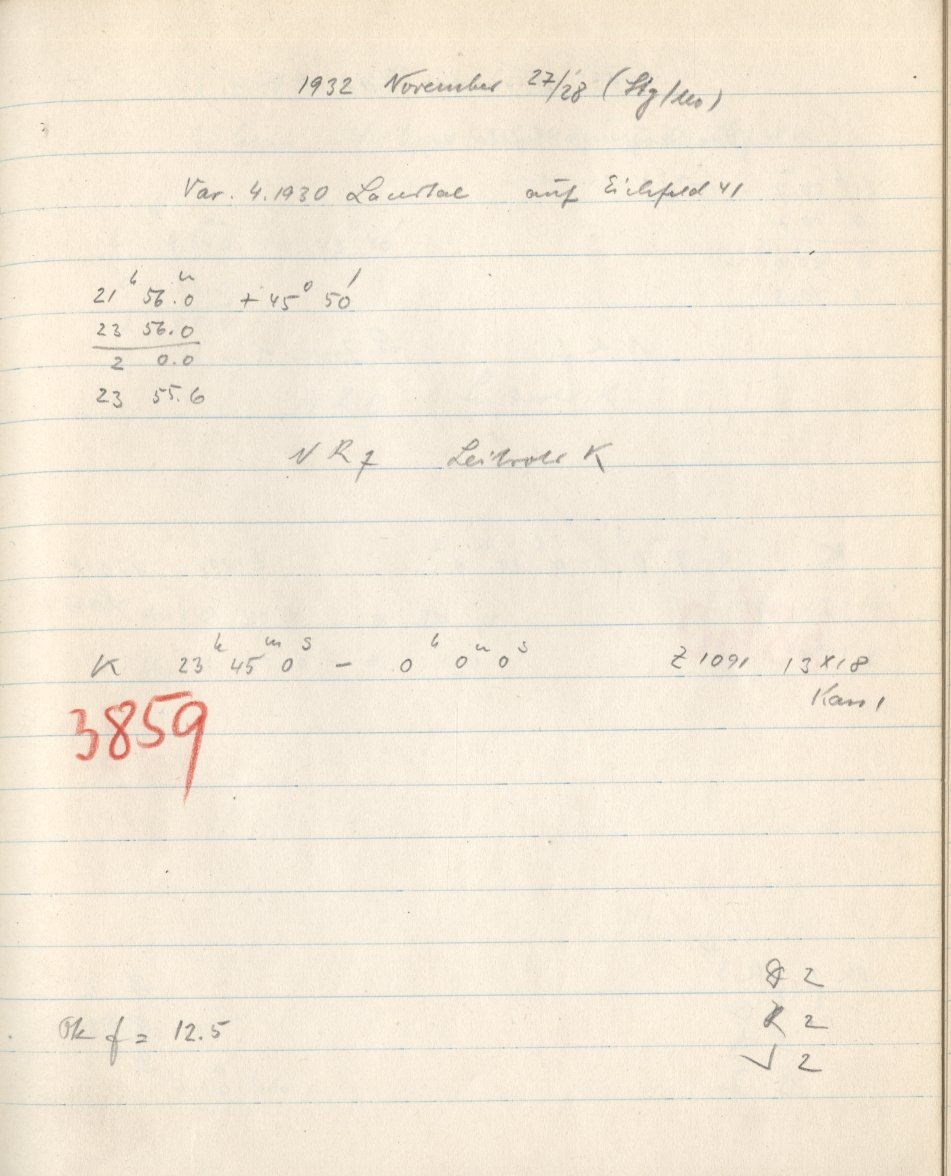 1932 November 27/28 (Stg/Mo)
Var. 4.1930 Lacertae auf Eichfeld 41
21ʰ 56.0ᵐ + 45° 50′
23 56.0
2 0.0
23 55.6
N R 7 Leitrohr K
K 23ʰ 45ᵐ 0ˢ – 0ʰ 0ᵐ 0ˢ Z 1091 13×18
Kass 1
3859
2
R 2
Ok f = 12.5
√ 2